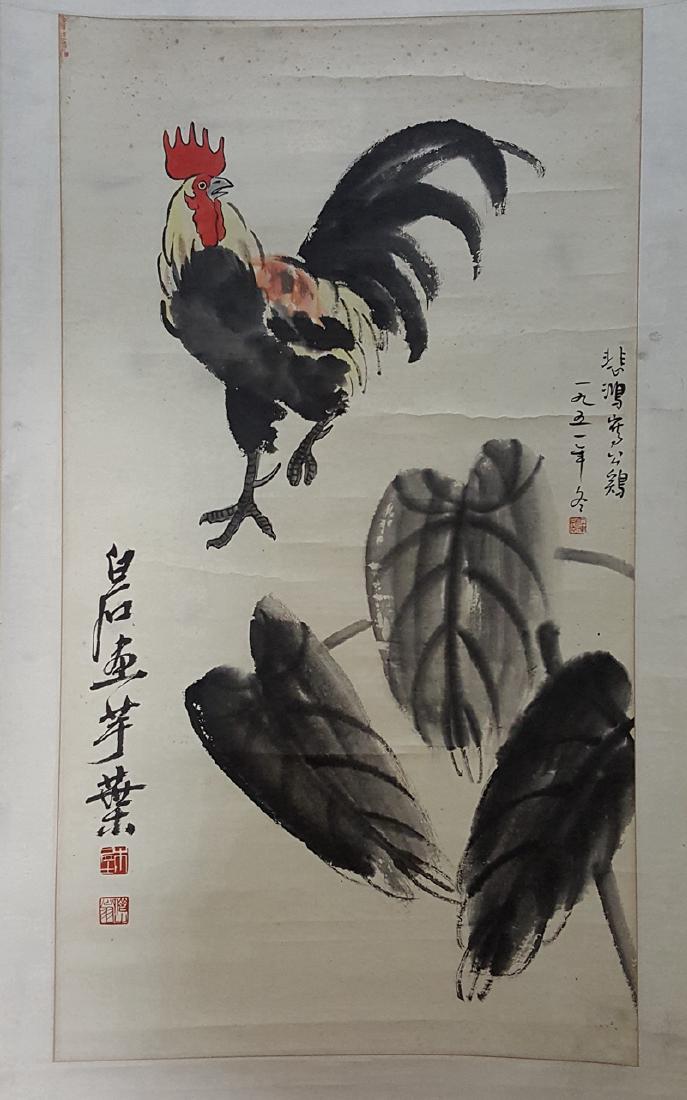 悲鴻寫公鷄
一九五一年冬
白石画芋葉